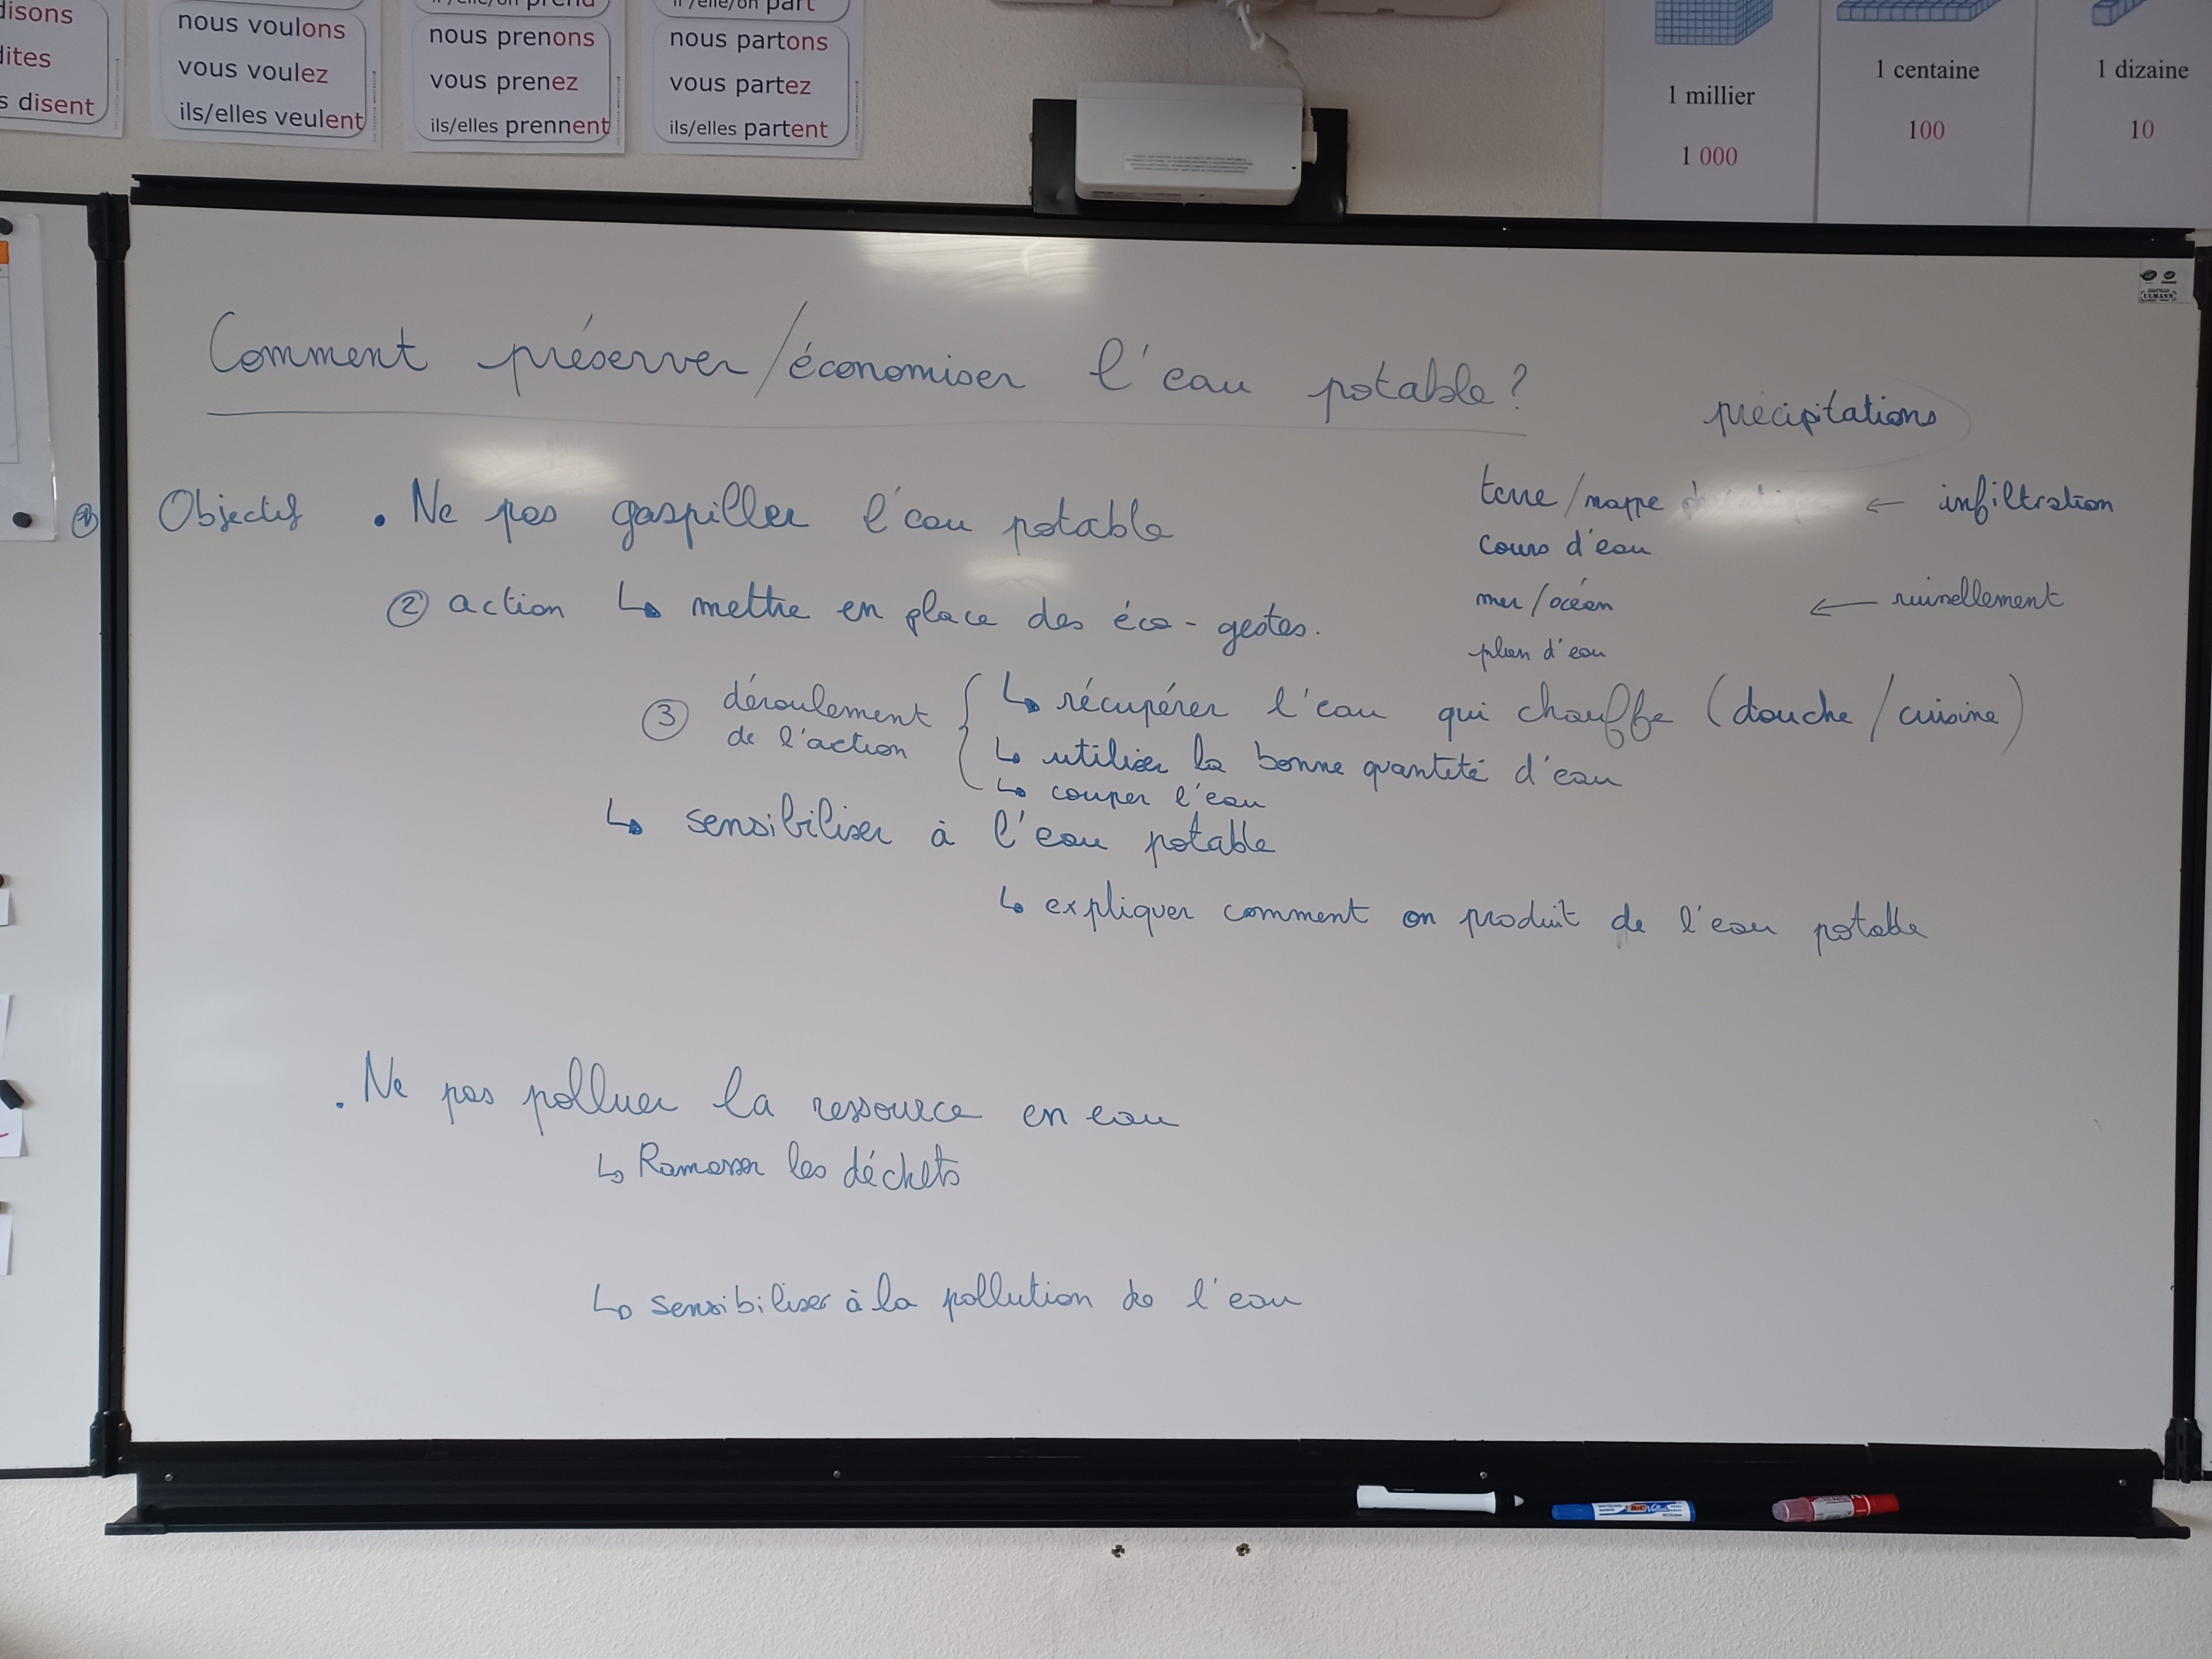 disons
dites
disent
nous voulons
vous voulez
ils/elles veulent
nous prenons
vous prenez
ils/elles prennent
nous partons
vous partez
ils/elles partent
1 millier
1 000
1 centaine
100
1 dizaine
10
ULMANN
Comment préserver/économiser l'eau potable ?
précipitations
① Objectif . Ne pas gaspiller l'eau potable
terre/nappe ← infiltration
cours d'eau
mer/océan ← ruissellement
plan d'eau
② action ↳ mettre en place des éco-gestes.
③ déroulement de l'action
↳ récupérer l'eau qui chauffe (douche/cuisine)
↳ utiliser la bonne quantité d'eau
↳ couper l'eau
↳ sensibiliser à l'eau potable
↳ expliquer comment on produit de l'eau potable
. Ne pas polluer la ressource en eau
↳ Ramasser les déchets
↳ sensibiliser à la pollution de l'eau
BIC